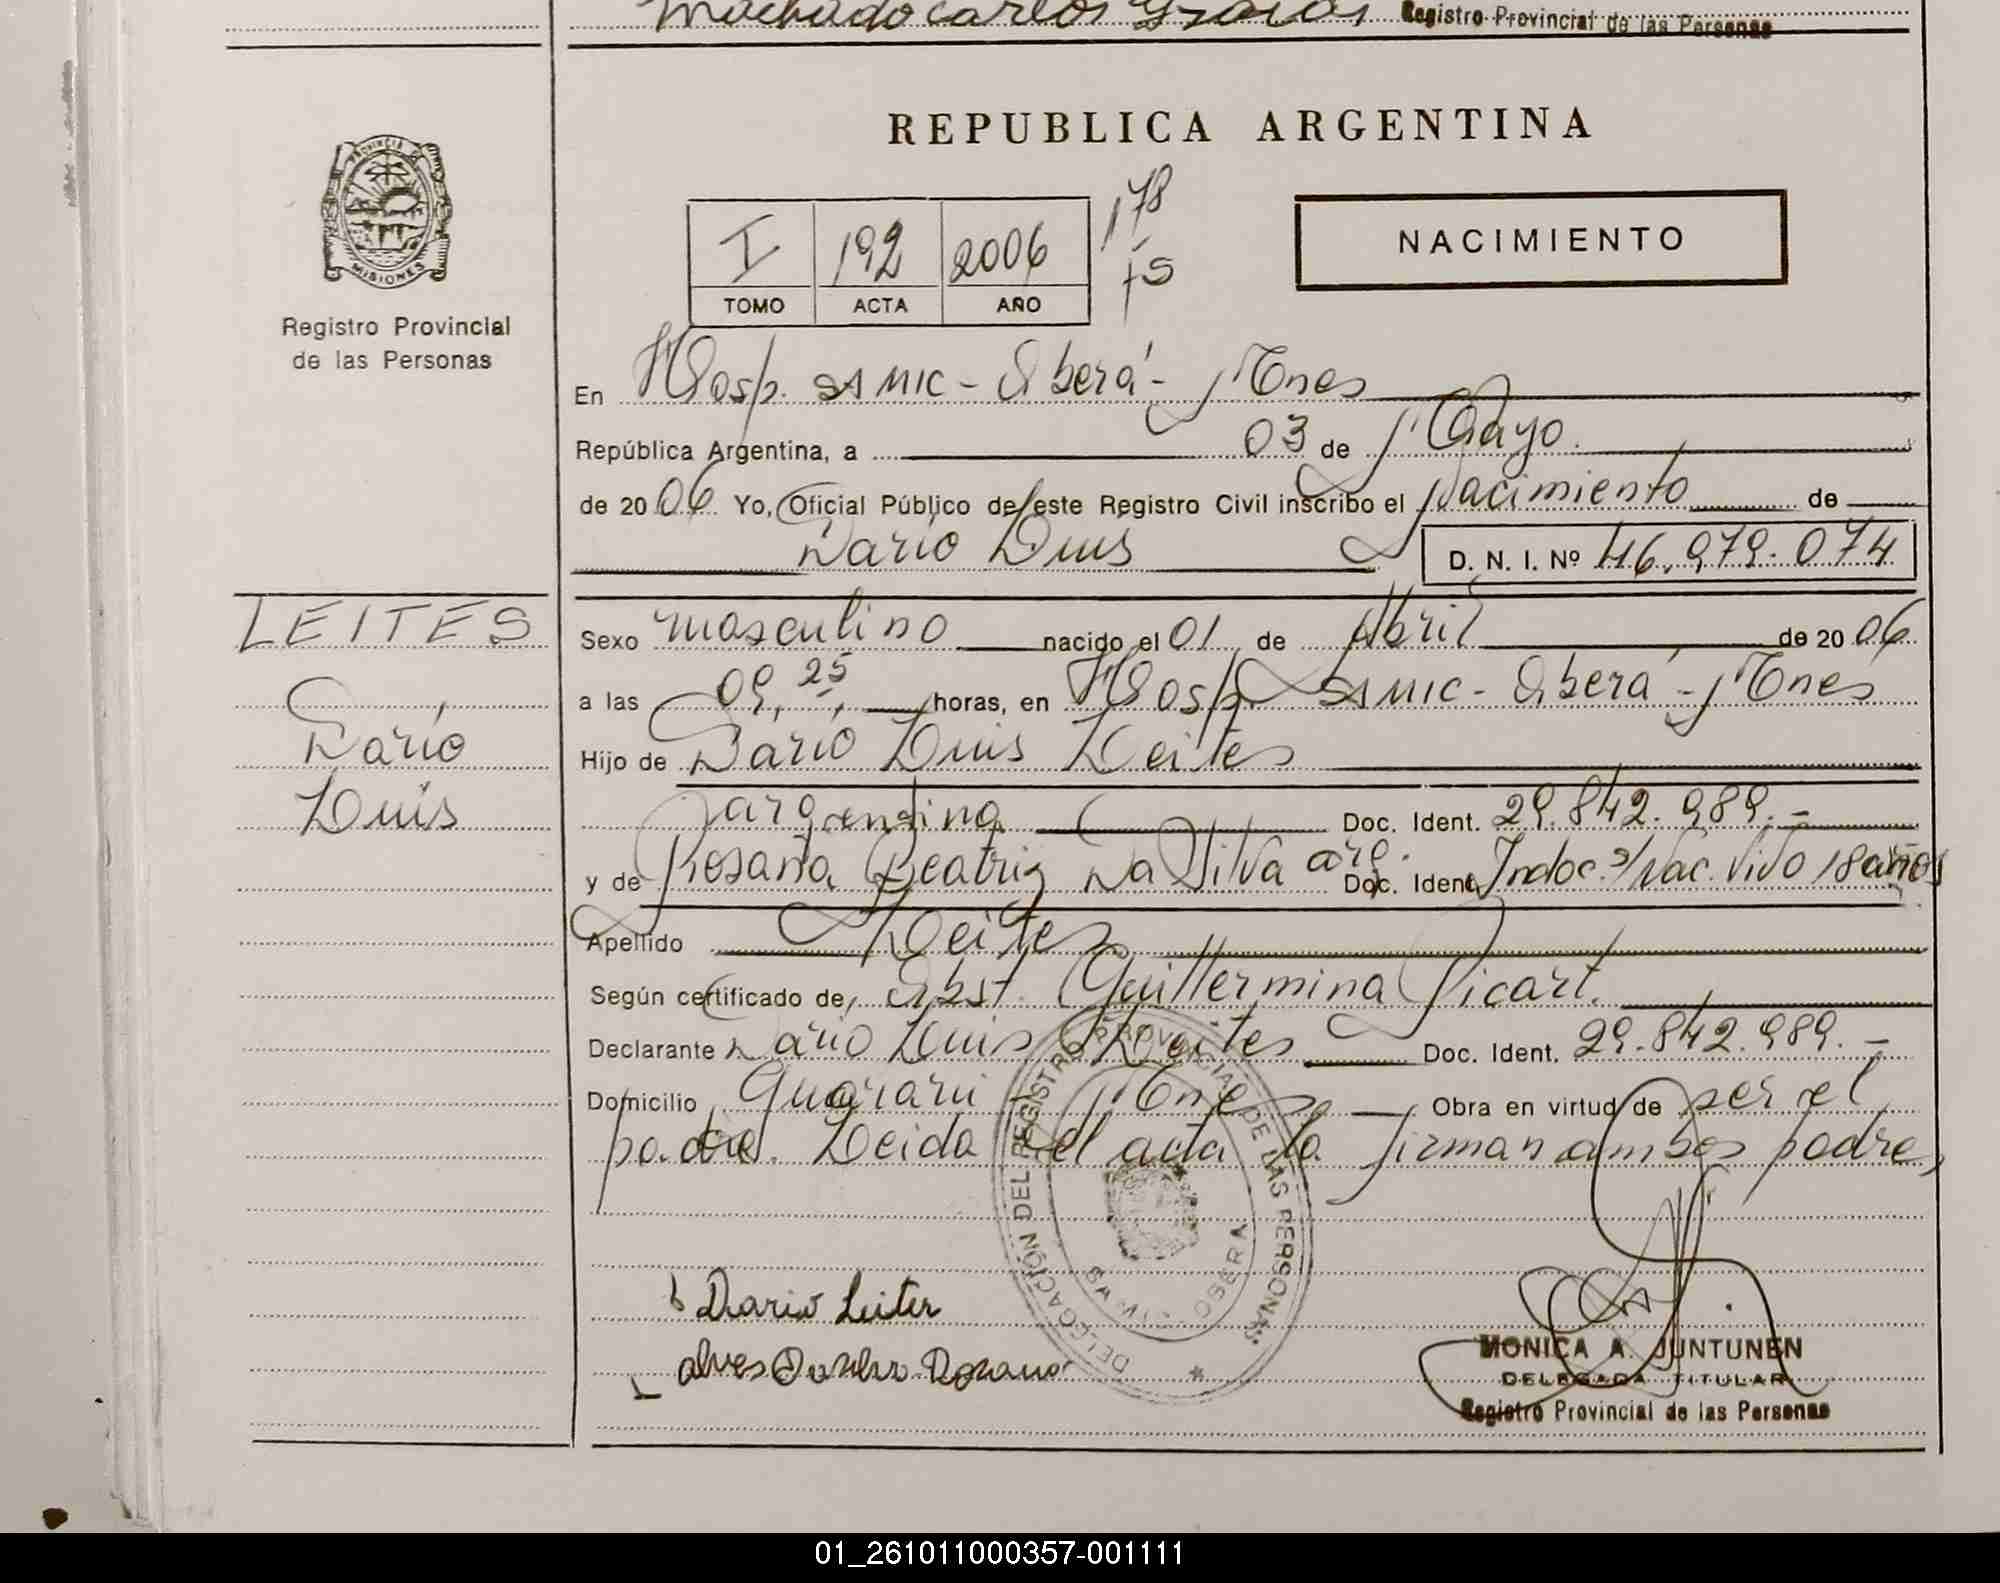 Machado Carlos
Registro Provincial de las Personas
REPUBLICA ARGENTINA
PROVINCIA DE
MISIONES
Registro Provincial
de las Personas
I 192 2006 178
TOMO ACTA AÑO fs
NACIMIENTO
En Hosp. SAMIC - Oberá - Mnes
República Argentina, a 03 de Mayo.
de 2006 Yo, Oficial Público de este Registro Civil inscribo el Nacimiento de
Dario Luis D. N. I. Nº 46.979.074
LEITES
Dario
Luis
Sexo masculino nacido el 01 de Abril de 2006
a las 09,25, horas, en Hosp SAMIC - Oberá - Mnes
Hijo de Dario Luis Leites
argentina Doc. Ident. 29.842.989.-
y de Rosana Beatriz Da Silva arg. Doc. Ident. Indoc. s/Nac. Vivo 18 años
Apellido Leites
Según certificado de, Obst. Guillermina Picart.
Declarante Dario Luis Leites Doc. Ident. 29.842.989.-
Domicilio Guarani - Mnes Obra en virtud de ser el
padre. Leida el acta la firman ambos padres
DELEGACIÓN DEL REGISTRO PROVINCIAL DE LAS PERSONAS
OBERA
Dario Leites
MONICA A. JUNTUNEN
DELEGADA TITULAR
Registro Provincial de las Personas
01_261011000357-001111